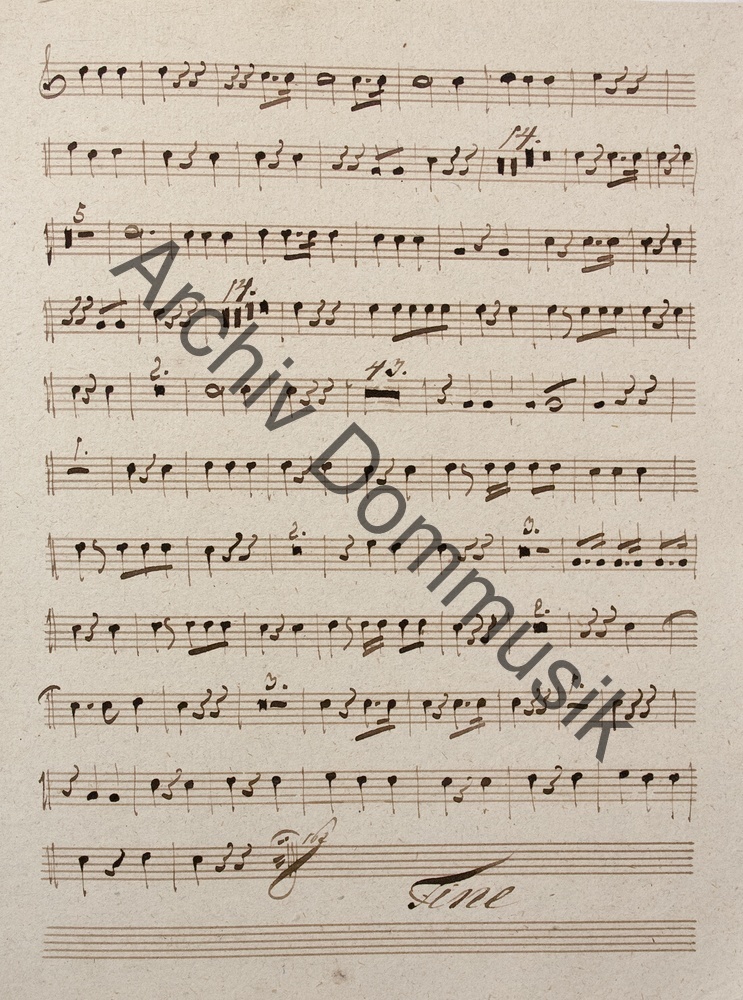 14.
5
14.
2.
43.
1.
2.
3.
2.
3.
Fine
Archiv Dommusik